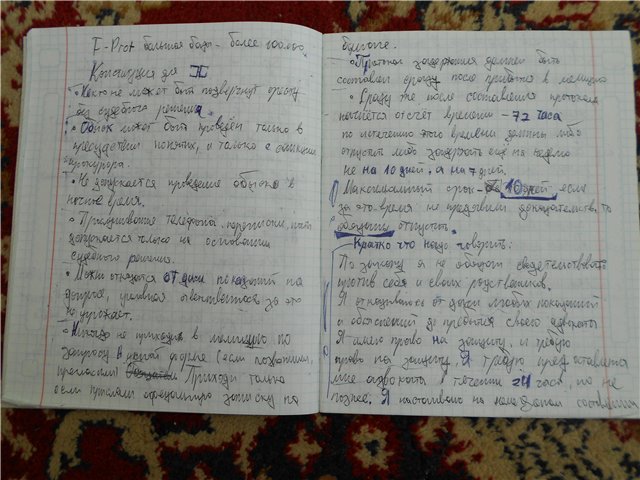 F-Prot большая база - более 100000.
Конституция для
• Никто не может быть подвергнут аресту
без судебного решения.
• Обыск может быть проведён только в
присутствии понятых, и только с санкции
прокурора.
• Не допускается проведение обыска в
ночное время.
• Прослушивание телефонов, переписки,
допускается только на основании
судебного решения.
• Можно отказаться от дачи показаний на
допросе, уголовная ответственность за это
не угрожает.
• Никогда не приходить в милицию по
запросу в устной форме (если позвонили,
пригласили) Приходи только
если прислали официальную записку на
бумаге.
• Протокол задержания должен быть
составлен сразу после прибытия в милицию
• Сразу же после составления протокола
начнётся отсчёт времени - 72 часа
по истечению этого времени должны либо
отпустить либо задержать ещё на неделю
не на 10 дней, а на 7 дней.
Максимальный срок - 10 дней, если
за это время не предъявили доказательств, то
обязаны отпустить.
Кратко что надо говорить:
По закону я не обязан свидетельствовать
против себя и своих родственников.
Я отказываюсь от дачи любых показаний
и объяснений до прибытия своего адвоката
Я имею право на защиту, и требую
право на защиту. Я требую предоставления
мне адвоката в течении 24 часа, но не
позже. Я настаиваю на составления